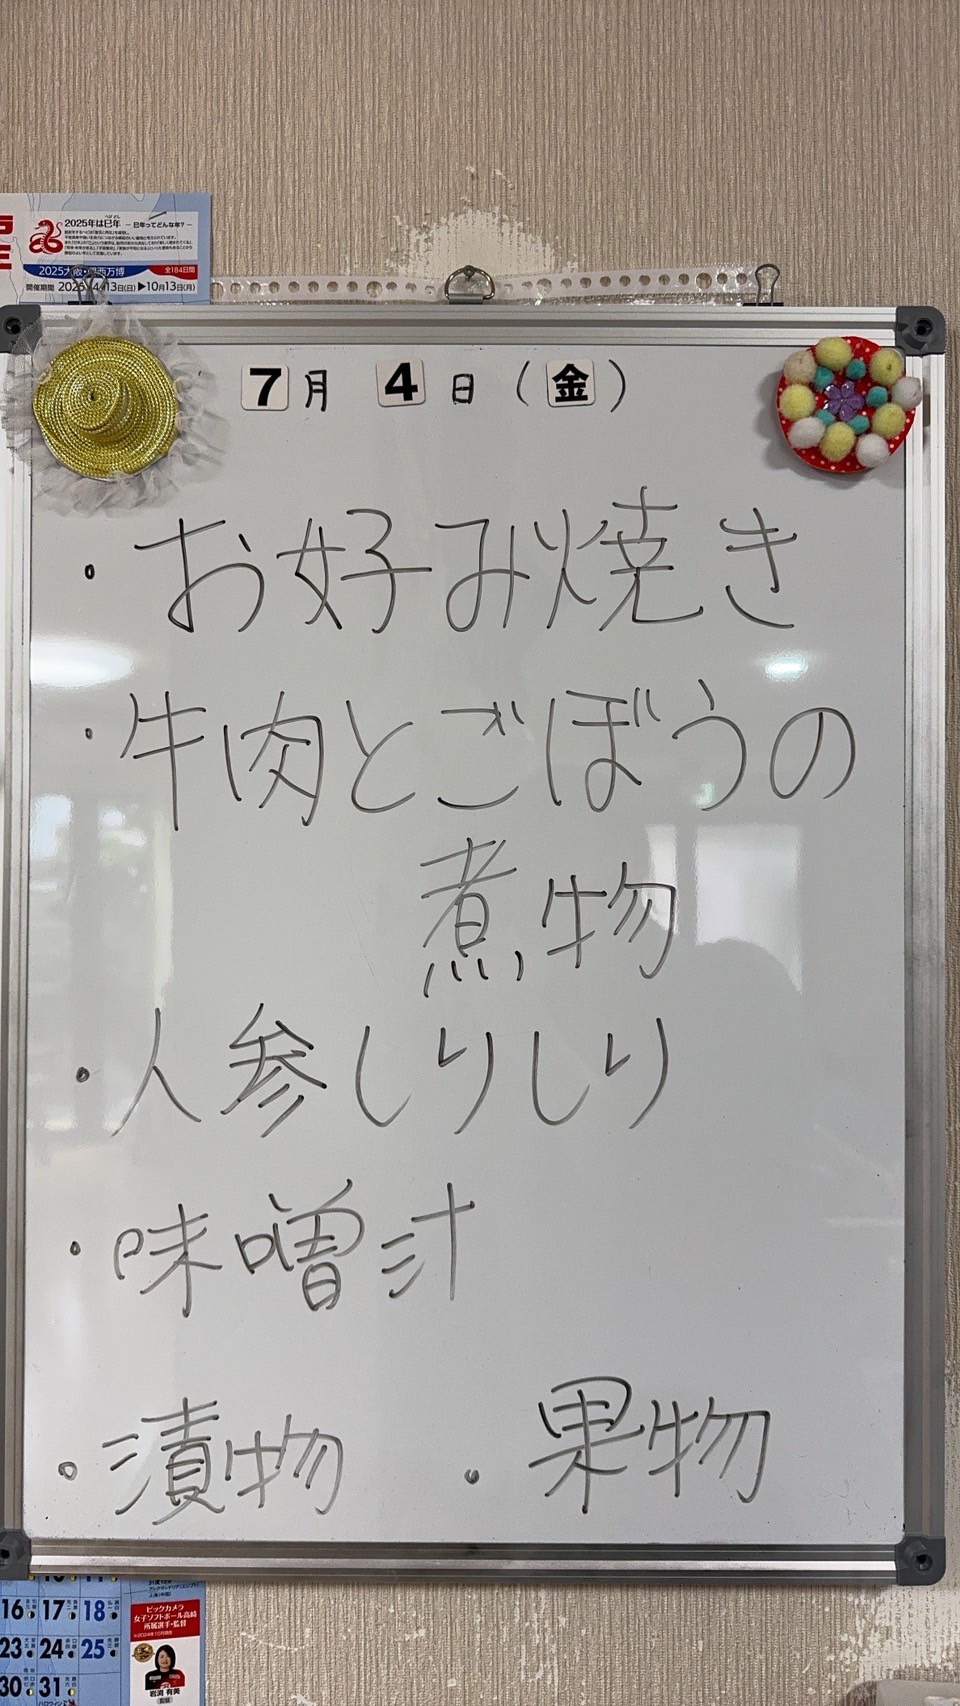 2025年は巳年 －巳年ってどんな年?－
2025大阪・関西万博 全184日間
開催期間 2025 4 13日(日)▶10月13日(月)
7月 4日(金)
・お好み焼き
・牛肉とごぼうの
煮物
・人参しりしり
・味噌汁
・漬物 ・果物
16 17 18
23 24 25
30 31
ビックカメラ
女子ソフトボール高崎
所属選手・監督
岩渕 有美